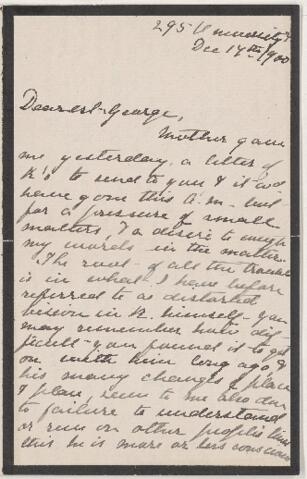 295 University St
Dec 17th/1900
Dearest George,
Mother gave
me yesterday, a letter of
K's to send to you & it wd
have gone this a.m. but
for a pressure of small
matters, & a desire to weigh
my words in the matter.
The root of all the trouble
is in what I have before
referred to as distorted
vision in K. himself - you
may remember how dif-
ficult you found it to get
on with him long ago, &
his many changes of place
& plan, seem to me also due
to failure to understand
or run on other people's lines
this he is more or less conscious